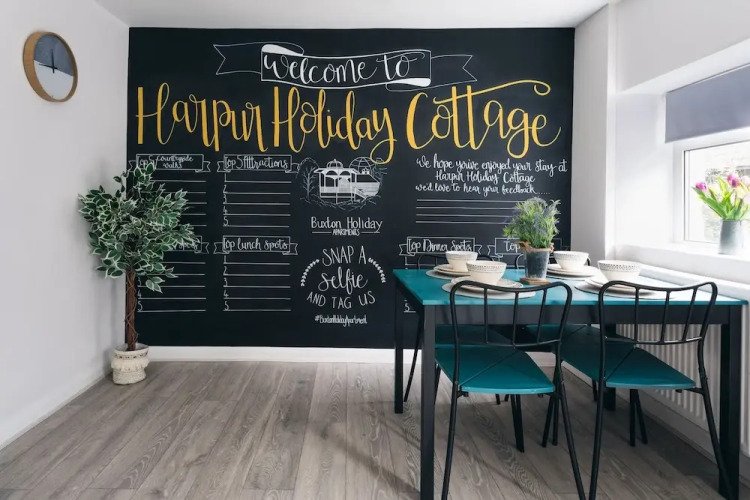 welcome to
Harpur Holiday Cottage
Top 5 Countryside
walks
Top 5 Attractions
1
2
3
4
5
Buxton Holiday
APARTMENTS
We hope you've enjoyed your stay at
Harpur Holiday Cottage
we'd love to hear your feedback...
Top Lunch Spots
1
2
3
4
5
SNAP A
Selfie
AND TAG US
Top Dinner Spots
Top